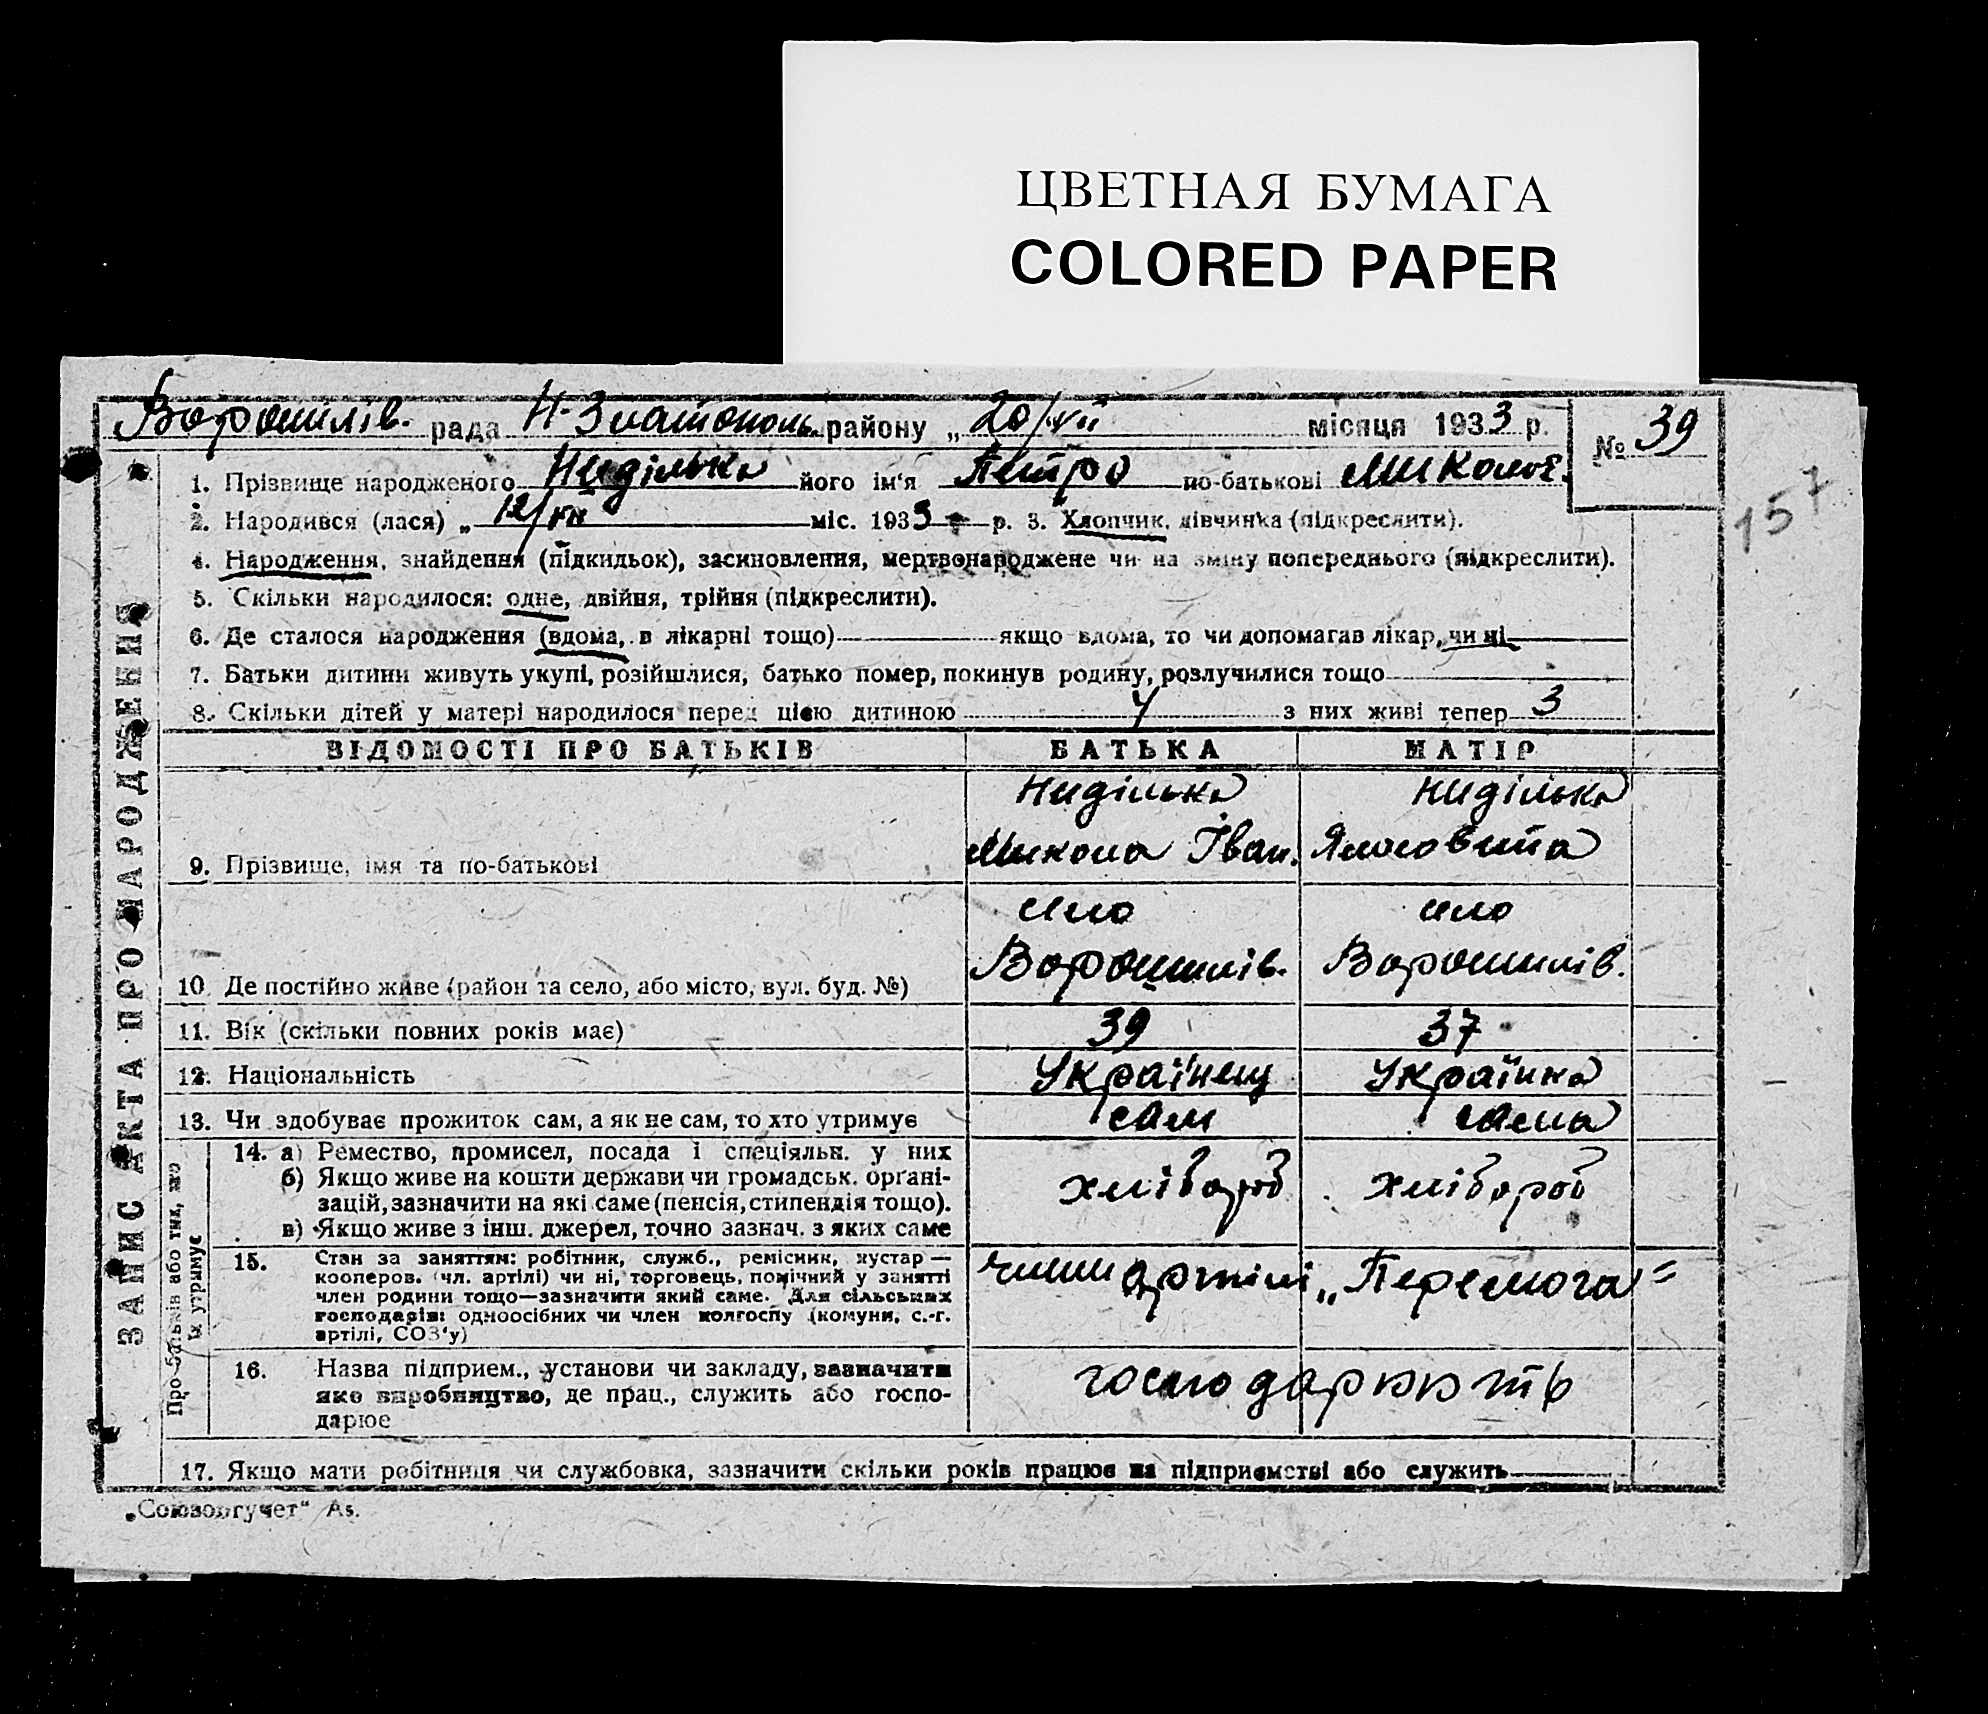 ЦВЕТНАЯ БУМАГА
COLORED PAPER
Ворошилів. рада Н-Златополь району „ 20/VII місяця 1933 р. № 39
157
1. Прізвище народженого Ниділька його ім‘я Петро по-батькові Микол.
2. Народився (лася) „ 12/VII міс. 1933 р. 3. Хлопчик, дівчинка (підкреслити).
4. Народження, знайдення (підкидьок), засиновлення, мертвонароджене чи на зміну попереднього (підкреслити).
5. Скільки народилося: одне, двійня, трійня (підкреслити).
6. Де сталося народження (вдома, в лікарні тощо) якщо вдома, то чи допомагав лікар, чи ні
7. Батьки дитини живуть укупі, розійшлися, батько помер, покинув родину, розлучилися тощо
8. Скільки дітей у матері народилося перед цією дитиною 4 з них живі тепер 3
ЗАПИС АКТА ПРО НАРОДЖЕННЯ
ВІДОМОСТІ ПРО БАТЬКІВ БАТЬКА МАТІР
Ниділька Ниділька
9. Прізвище, імя та по-батькові Микола Іван.
село село
10. Де постійно живе (район та село, або місто, вул. буд. №) Ворошилів. Ворошилів.
11. Вік (скільки повних років має) 39 37
12. Національність Українец Українка
13. Чи здобуває прожиток сам, а як не сам, то хто утримує сам сама
Про батьків або тих, хто їх утримує
14. а) Ремество, промисел, посада і спеціяльн. у них
б) Якщо живе на кошти держави чи громадськ. органі-
зацій, зазначити на які саме (пенсія, стипендія тощо). хлібороб хлібороб
в) Якщо живе з інш. джерел, точно зазнач. з яких саме
15. Стан за заняттям: робітник, служб., ремісник, кустар —
кооперов. (чл. артілі) чи ні, торговець, помічний у занятті
член родини тощо—зазначити який саме. Для сільських
господарів: одноосібник чи член колгоспу (комуни, с.-г.
артілі, СОЗ‘у)
члени артілі „Перемога"
16. Назва підприєм., установи чи закладу, зазначити
яке виробництво, де прац., служить або госпо-
дарює
господарюють
17. Якщо мати робітниця чи службовка, зазначити скільки років працює на підприємстві або служить
„Союзоргучет“ Аз.